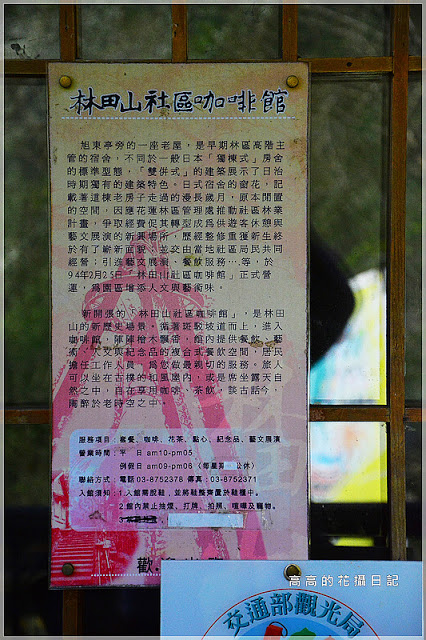 林田山社區咖啡館
旭東亭旁的一座老屋，是早期林區高階主
管的宿舍，不同於一般日本「獨棟式」房舍
的標準型態，「雙併式」的建築展示了日治
時期獨有的建築特色。日式宿舍的窗花，記
載著這棟老房子走過的漫長歲月，原本閒置
的空間，因應花蓮林區管理處推動社區林業
計畫，爭取經費促其轉型成為供遊客休憩與
藝文展演的新興場所，歷經整修重獲新生終
於有了嶄新面貌；並交由當地社區居民共同
經營；引進藝文展演、餐飲服務…等，於
94年2月25日「林田山社區咖啡館」正式營
運，為園區增添人文與藝術味。
新開張的「林田山社區咖啡館」，是林田
山的新歷史場景，循著斑駁坡道而上，進入
咖啡館，陣陣檜木飄香，館內提供餐飲、藝
術、人文與紀念品的複合式餐飲空間，居民
擔任工作人員，為您做最親切的服務。旅人
可以坐在古樸的和風屋內，或是席坐露天自
然之中，自在享用咖啡、茶飲，談古話今，
陶醉於老時空之中。
服務項目：套餐、咖啡、花茶、點心、紀念品、藝文展演
營業時間：平　日 am10-pm05
例假日 am09-pm06（每星期 公休）
聯絡方式：電話 03-8752378 傳真：03-8752371
入館須知：1.入館需脫鞋，並將鞋整齊置於鞋櫃中。
2.館內禁止抽煙、打牌、拍照、喧嘩及寵物。
3.
歡
高高的花攝日記
交通部觀光局